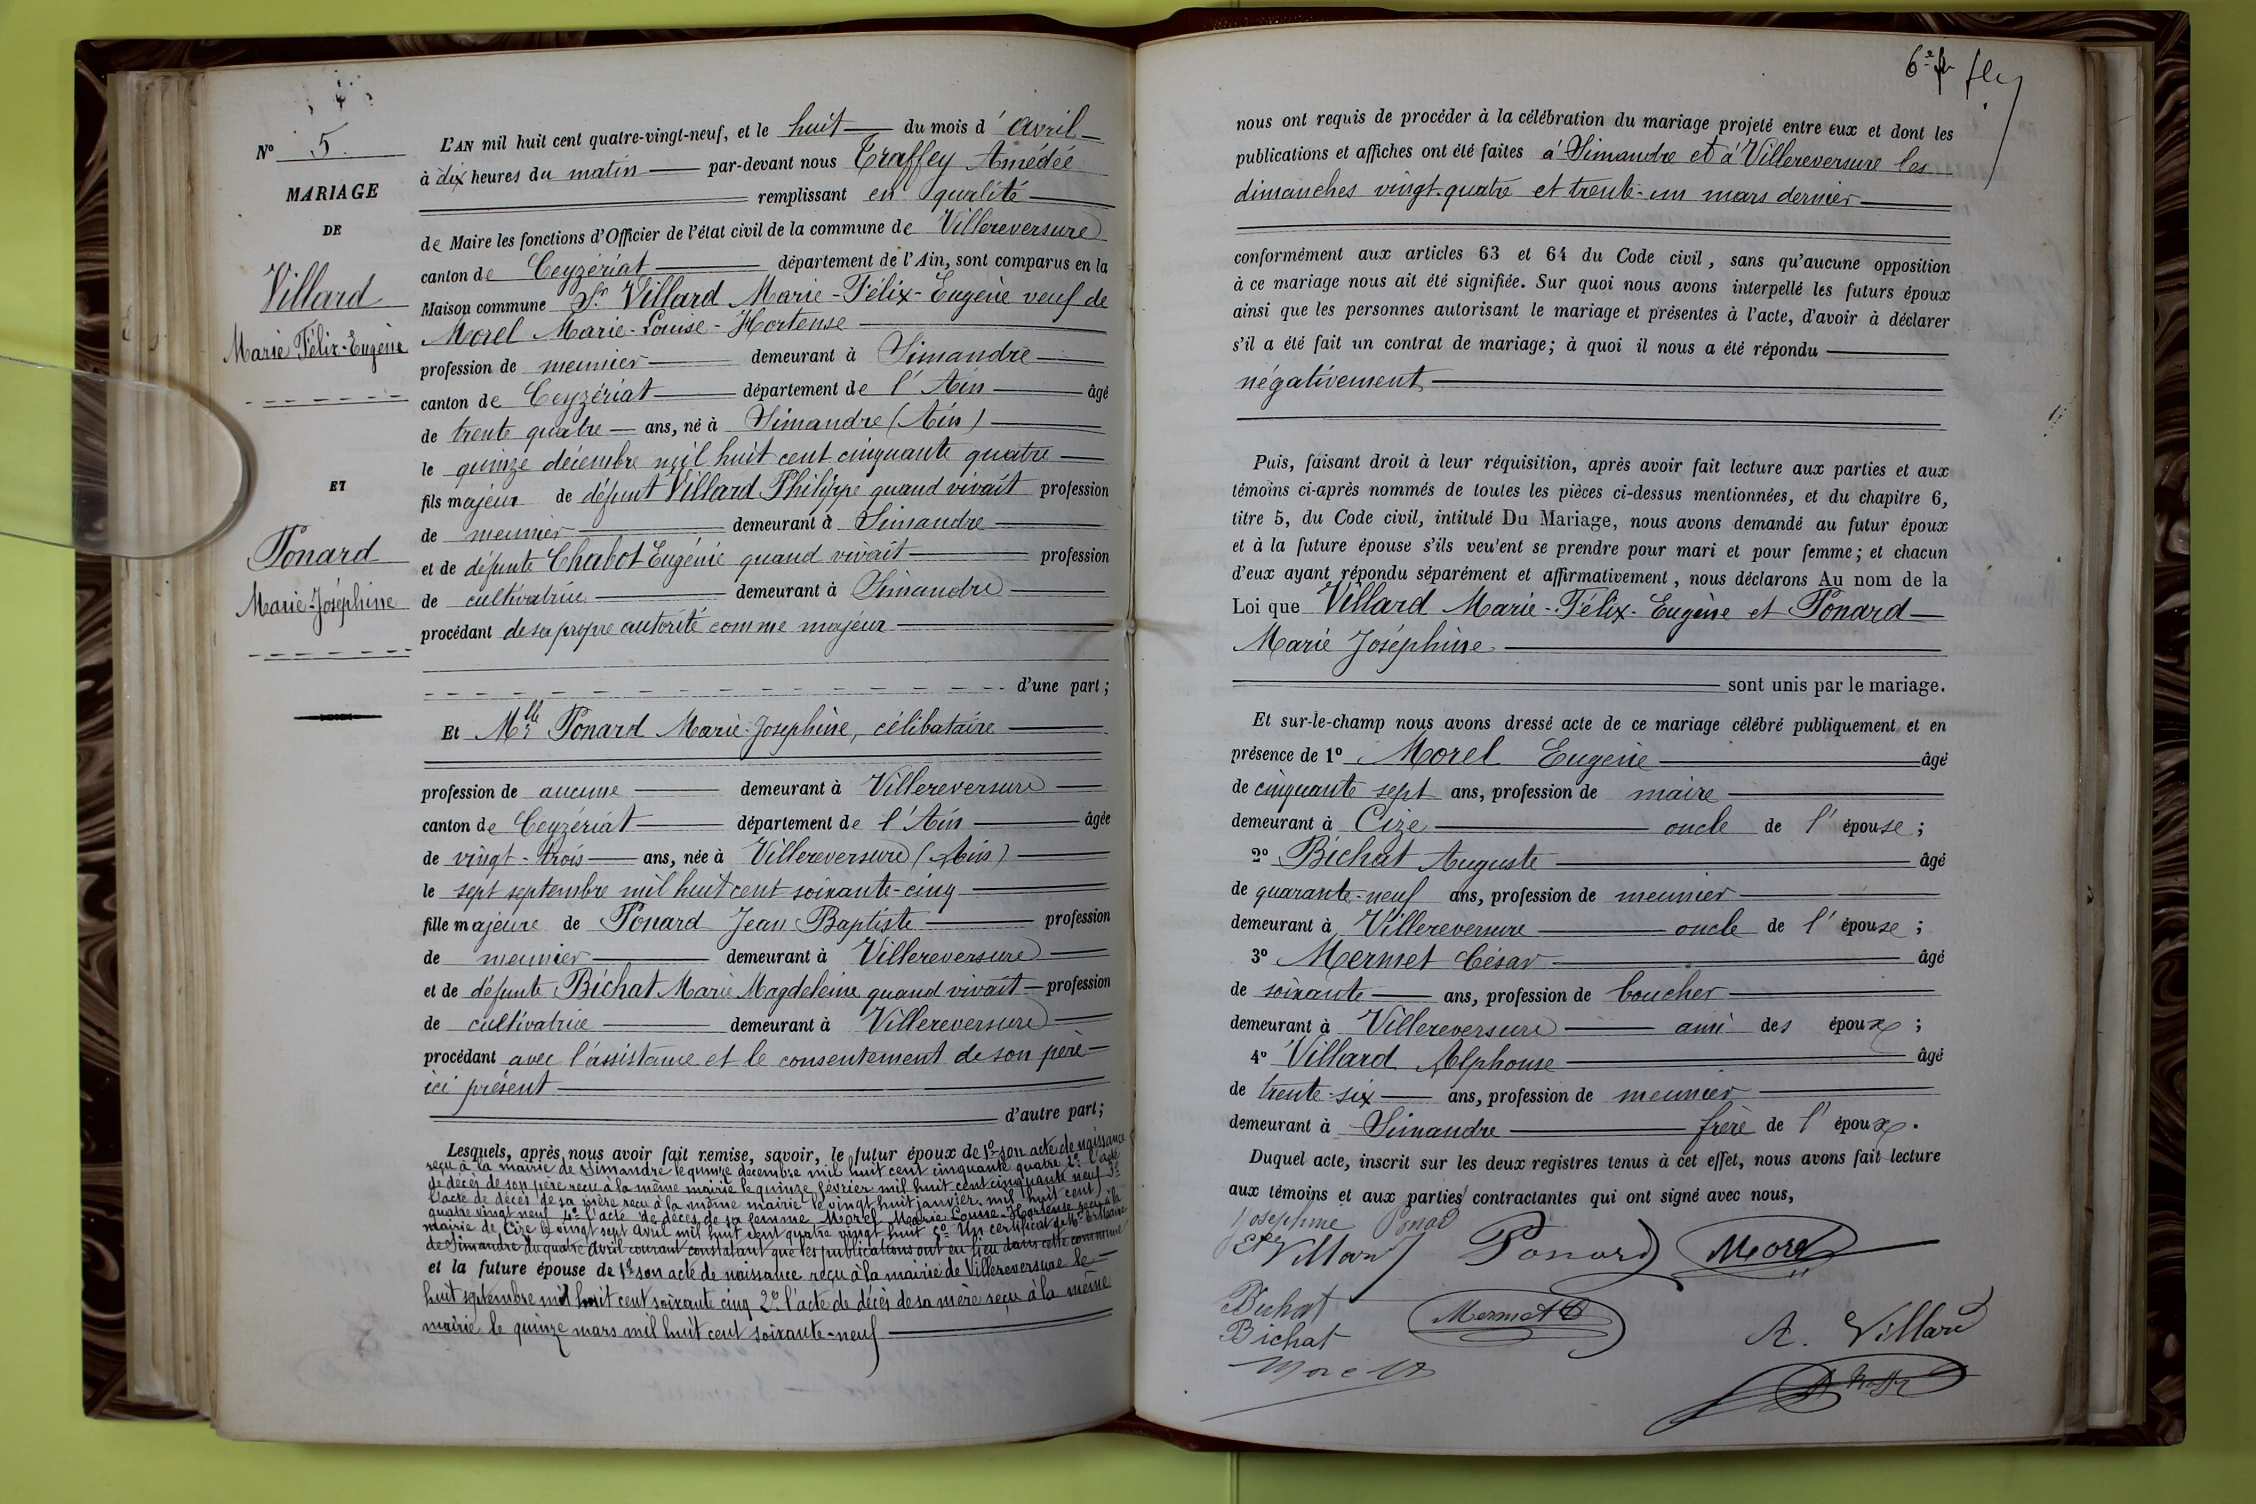 N° 5.
MARIAGE
DE
Villard
Marie Félix-Eugène
ET
Ponard
Marie-Joséphine
L'AN mil huit cent quatre-vingt-neuf, et le huit du mois d'avril
à dix heures du matin par-devant nous Traffey Amédée
remplissant en qualité
de Maire les fonctions d'Officier de l'état civil de la commune de Villereversure
canton de Ceyzériat département de l'Ain, sont comparus en la
Maison commune Sr Villard Marie-Félix-Eugène veuf de
Morel Marie-Louise-Hortense
profession de meunier demeurant à Simandre
canton de Ceyzériat département de l'Ain âgé
de trente quatre ans, né à Simandre (Ain)
le quinze décembre mil huit cent cinquante quatre
fils majeur de défunt Villard Philippe quand vivait profession
de meunier demeurant à Simandre
et de défunte Chabot Eugénie quand vivait profession
de cultivatrice demeurant à Simandre
procédant de sa propre autorité comme majeur
d'une part;
Et Melle Ponard Marie-Josephine, célibataire
profession de aucune demeurant à Villereversure
canton de Ceyzériat département de l'Ain âgée
de vingt-trois ans, née à Villereversure (Ain)
le sept septembre mil huit cent soixante-cinq
fille majeure de Ponard Jean Baptiste profession
de meunier demeurant à Villereversure
et de défunte Bichat Marie Magdeleine quand vivait profession
de cultivatrice demeurant à Villereversure
procédant avec l'assistance et le consentement de son père
ici présent
d'autre part;
Lesquels, après nous avoir fait remise, savoir, le futur époux de 1° son acte de naissance
reçu à la mairie de Simandre le quinze décembre mil huit cent cinquante quatre 2° l'acte
de décès de son père reçu à la même mairie le quinze février mil huit cent cinquante neuf 3°
l'acte de décès de sa mère reçu à la même mairie le vingt huit janvier mil huit cent
quatre vingt neuf 4° l'acte de décès de sa femme Morel Marie Louise-Hortense reçu à la
mairie de Cize le vingt sept avril mil huit cent quatre vingt huit 5° Un certificat de Mr le Maire
de Simandre du quatre avril courant constatant que les publications ont eu lieu dans cette commune
et la future épouse de 1° son acte de naissance reçu à la mairie de Villereversure le
huit septembre mil huit cent soixante cinq 2° l'acte de décès de sa mère reçu à la même
mairie le quinze mars mil huit cent soixante-neuf
6e
nous ont requis de procéder à la célébration du mariage projeté entre eux et dont les
publications et affiches ont été faites à Simandre et à Villereversure les
dimanches vingt-quatre et trente-un mars dernier
conformément aux articles 63 et 64 du Code civil, sans qu'aucune opposition
à ce mariage nous ait été signifiée. Sur quoi nous avons interpellé les futurs époux
ainsi que les personnes autorisant le mariage et présentes à l'acte, d'avoir à déclarer
s'il a été fait un contrat de mariage; à quoi il nous a été répondu
négativement
Puis, faisant droit à leur réquisition, après avoir fait lecture aux parties et aux
témoins ci-après nommés de toutes les pièces ci-dessus mentionnées, et du chapitre 6,
titre 5, du Code civil, intitulé Du Mariage, nous avons demandé au futur époux
et à la future épouse s'ils veu'ent se prendre pour mari et pour femme; et chacun
d'eux ayant répondu séparément et affirmativement, nous déclarons Au nom de la
Loi que Villard Marie-Félix-Eugène et Ponard
Marie Joséphine
sont unis par le mariage.
Et sur-le-champ nous avons dressé acte de ce mariage célébré publiquement et en
présence de 1° Morel Eugène âgé
de cinquante sept ans, profession de maire
demeurant à Cize oncle de l'épouse;
2° Bichat Auguste âgé
de quarante-neuf ans, profession de meunier
demeurant à Villereversure oncle de l'épouse;
3° Mermet César âgé
de soixante ans, profession de boucher
demeurant à Villereversure ami des époux;
4° Villard Alphonse âgé
de trente-six ans, profession de meunier
demeurant à Simandre frère de l'époux.
Duquel acte, inscrit sur les deux registres tenus à cet effet, nous avons fait lecture
aux témoins et aux parties contractantes qui ont signé avec nous,
Josephine Ponard
Villard Ponard Morel
Bichat Mermet
Bichat A. Villard
Morel